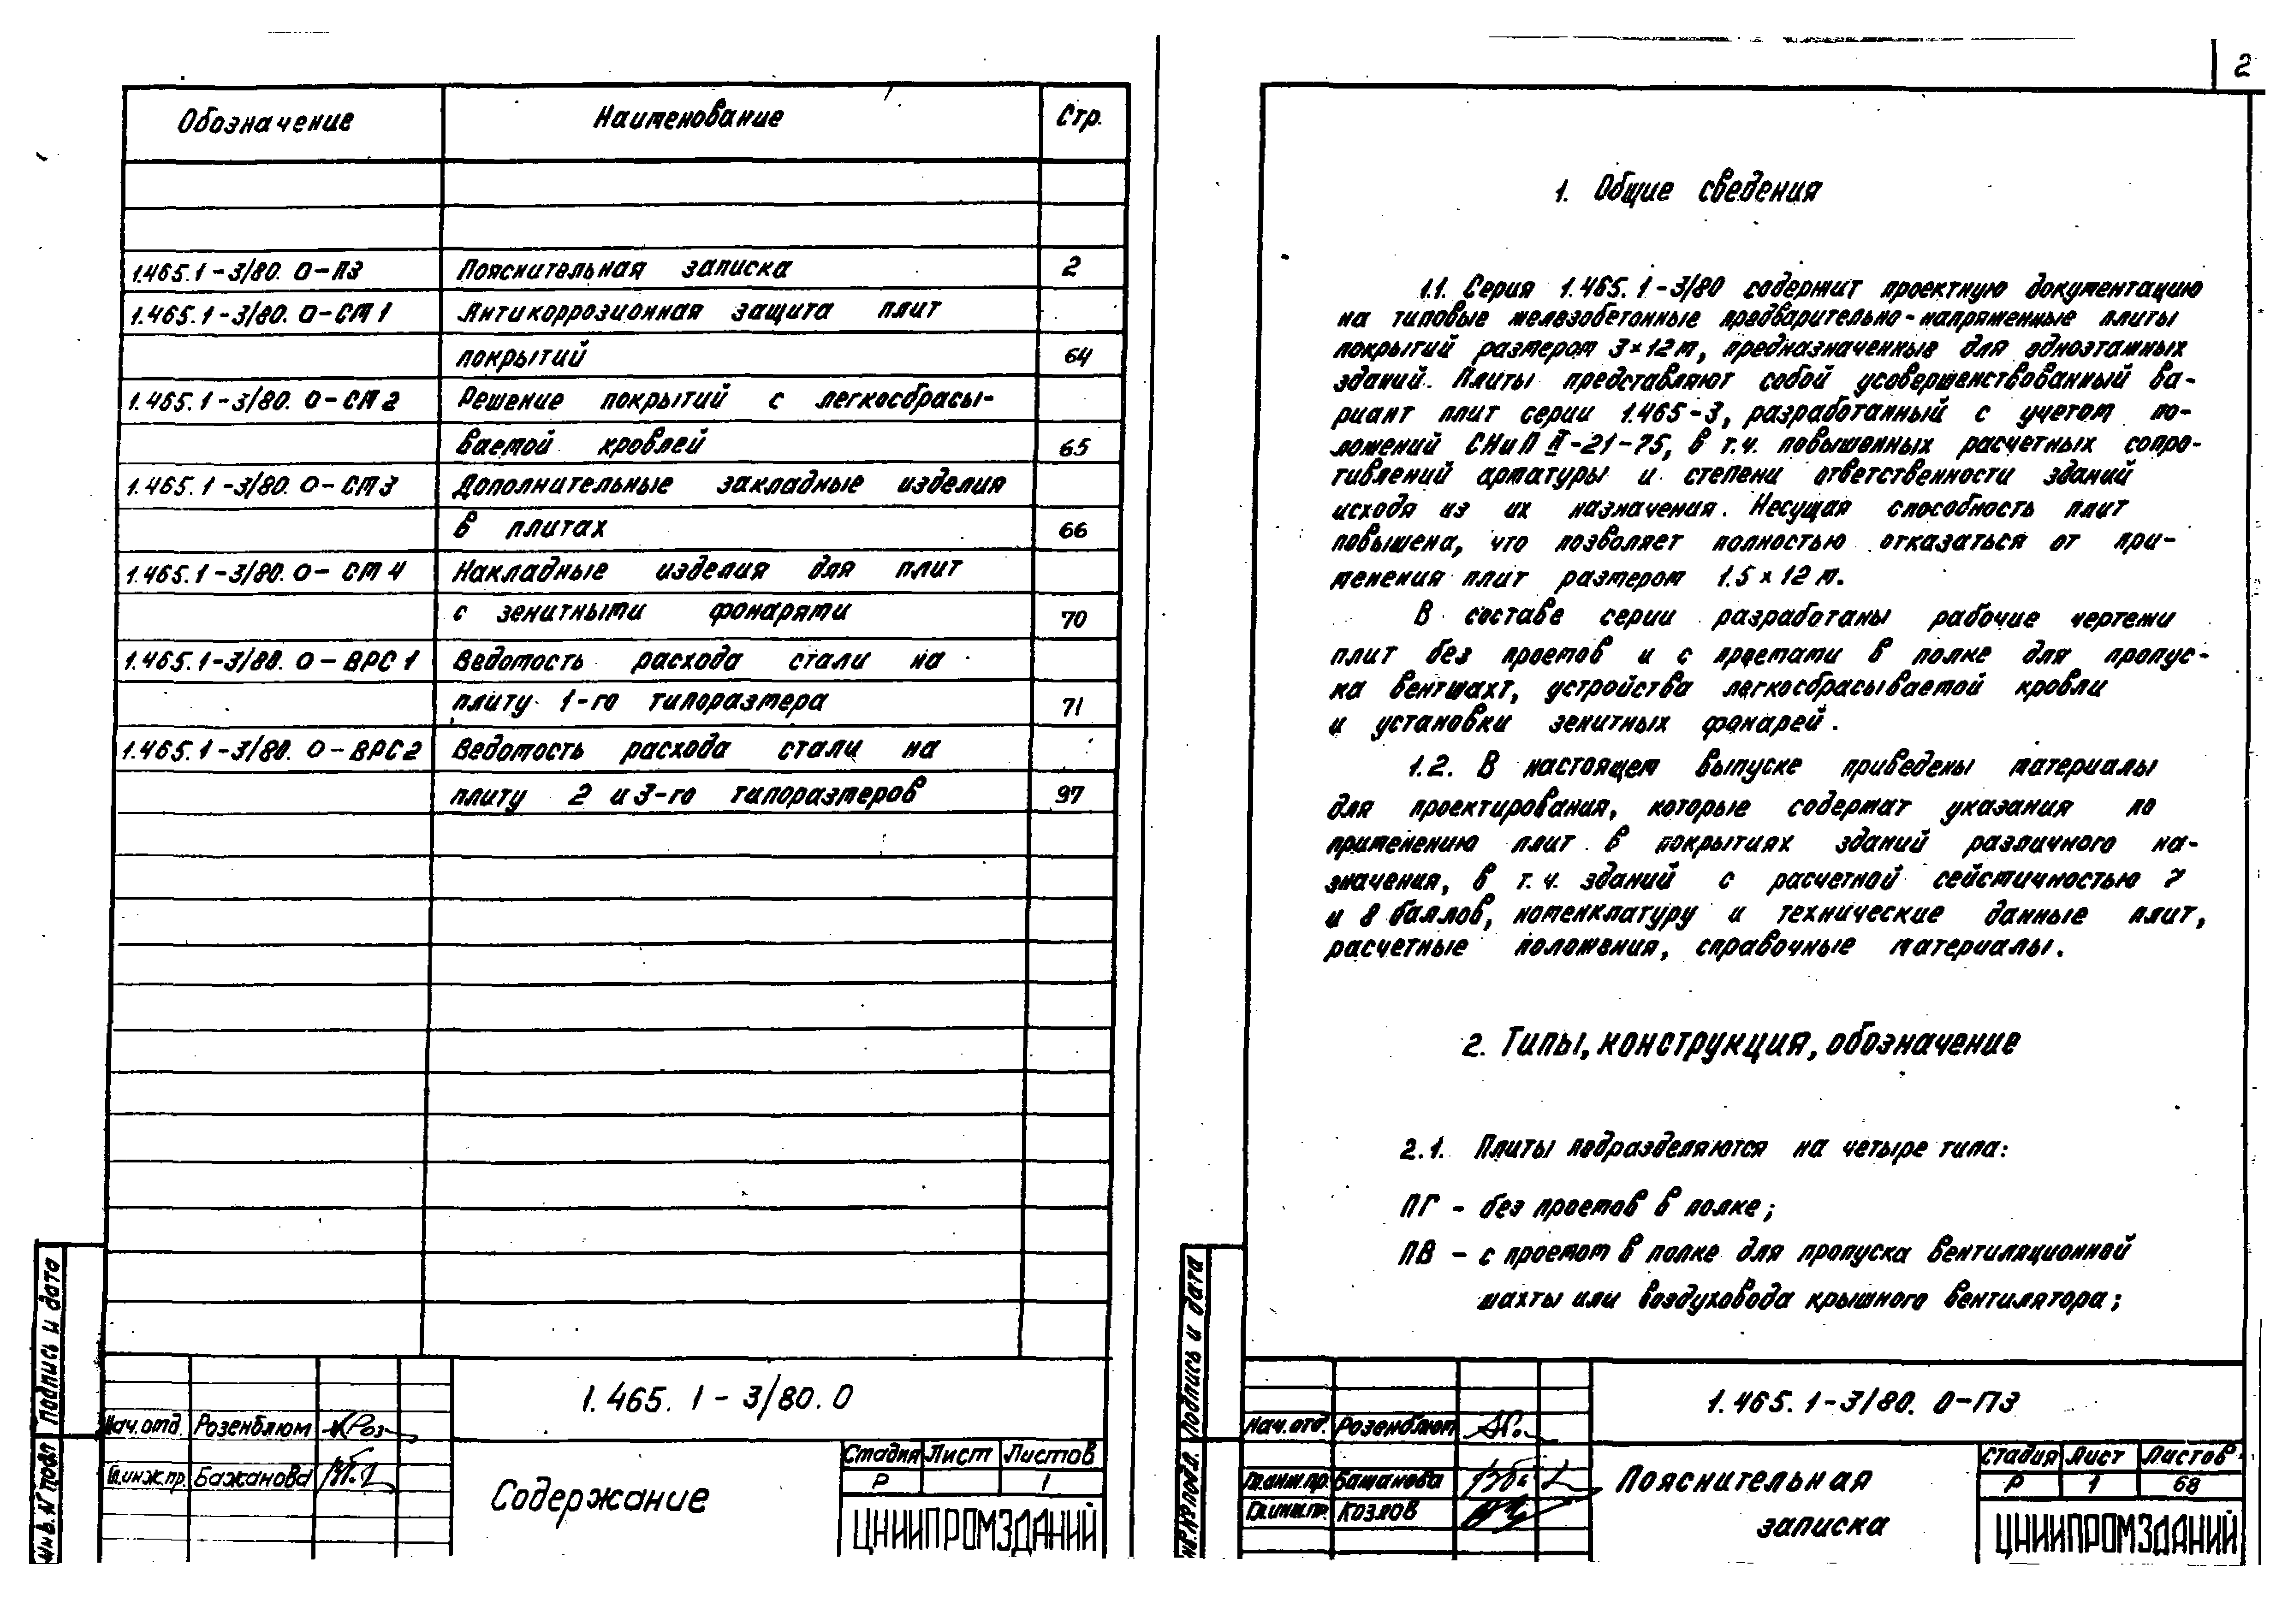 Обозначение Наименование Стр.
1.465.1-3/80. 0-ПЗ Пояснительная записка 2
1.465.1-3/80. 0-СМ1 Антикоррозионная защита плит
покрытий 64
1.465.1-3/80. 0-СМ2 Решение покрытий с легкосбрасы-
ваемой кровлей 65
1.465.1-3/80. 0-СМ3 Дополнительные закладные изделия
в плитах 66
1.465.1-3/80. 0-СМ4 Накладные изделия для плит
с зенитными фонарями 70
1.465.1-3/80. 0-ВРС1 Ведомость расхода стали на
плиту 1-го типоразмера 71
1.465.1-3/80. 0-ВРС2 Ведомость расхода стали на
плиту 2 и 3-го типоразмеров 97
Подпись и дата
Инв.№ подл
1.465.1-3/80.0
Нач.отд. Розенблюм
Гл.инж.пр Бажанова
Содержание
Стадия Лист Листов
Р 1
ЦНИИПРОМЗДАНИЙ
2
1. Общие сведения
1.1. Серия 1.465.1-3/80 содержит проектную документацию
на типовые железобетонные предварительно-напряженные плиты
покрытий размером 3×12м, предназначенные для одноэтажных
зданий. Плиты представляют собой усовершенствованный ва-
риант плит серии 1.465-3, разработанный с учетом по-
ложений СНиП II-21-75, в т.ч. повышенных расчетных сопро-
тивлений арматуры и степени ответственности зданий
исходя из их назначения. Несущая способность плит
повышена, что позволяет полностью отказаться от при-
менения плит размером 1.5×12м.
В составе серии разработаны рабочие чертежи
плит без проемов и с проемами в полке для пропус-
ка вентшахт, устройства легкосбрасываемой кровли
и установки зенитных фонарей.
1.2. В настоящем выпуске приведены материалы
для проектирования, которые содержат указания по
применению плит в покрытиях зданий различного на-
значения, в т.ч. зданий с расчетной сейсмичностью 7
и 8 баллов, номенклатуру и технические данные плит,
расчетные положения, справочные материалы.
2. Типы, конструкция, обозначение
2.1. Плиты подразделяются на четыре типа:
ПГ - без проемов в полке;
ПВ - с проемом в полке для пропуска вентиляционной
шахты или воздуховода крышного вентилятора;
Подпись и дата
Инв.№подл.
1.465.1-3/80. 0-ПЗ
Нач.отд. Розенблюм
Гл.инж.пр. Бажанова
Гл.инж.пр. Козлов
Пояснительная
записка
Стадия Лист Листов
Р 1 68
ЦНИИПРОМЗДАНИЙ